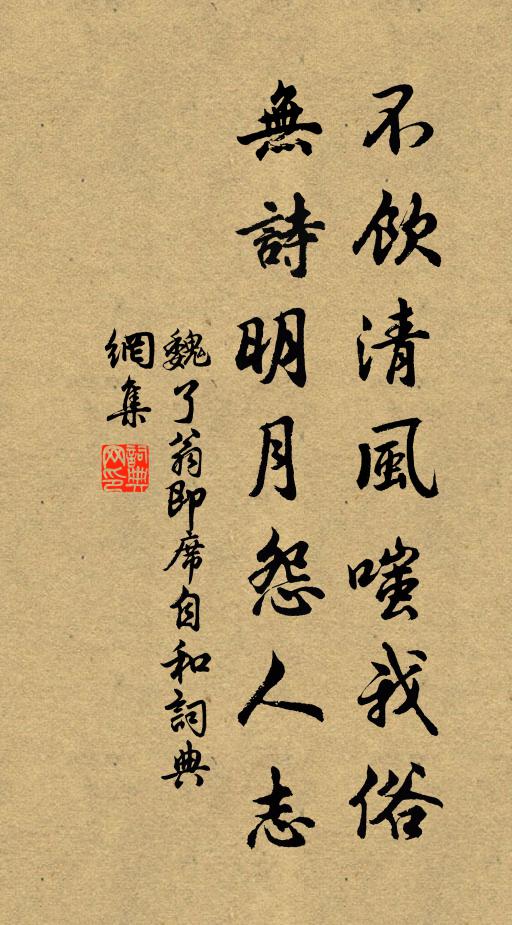 不飲清風嗤我俗
無詩明月怨人志
魏了翁即席自和詞典
網集
詞典網印